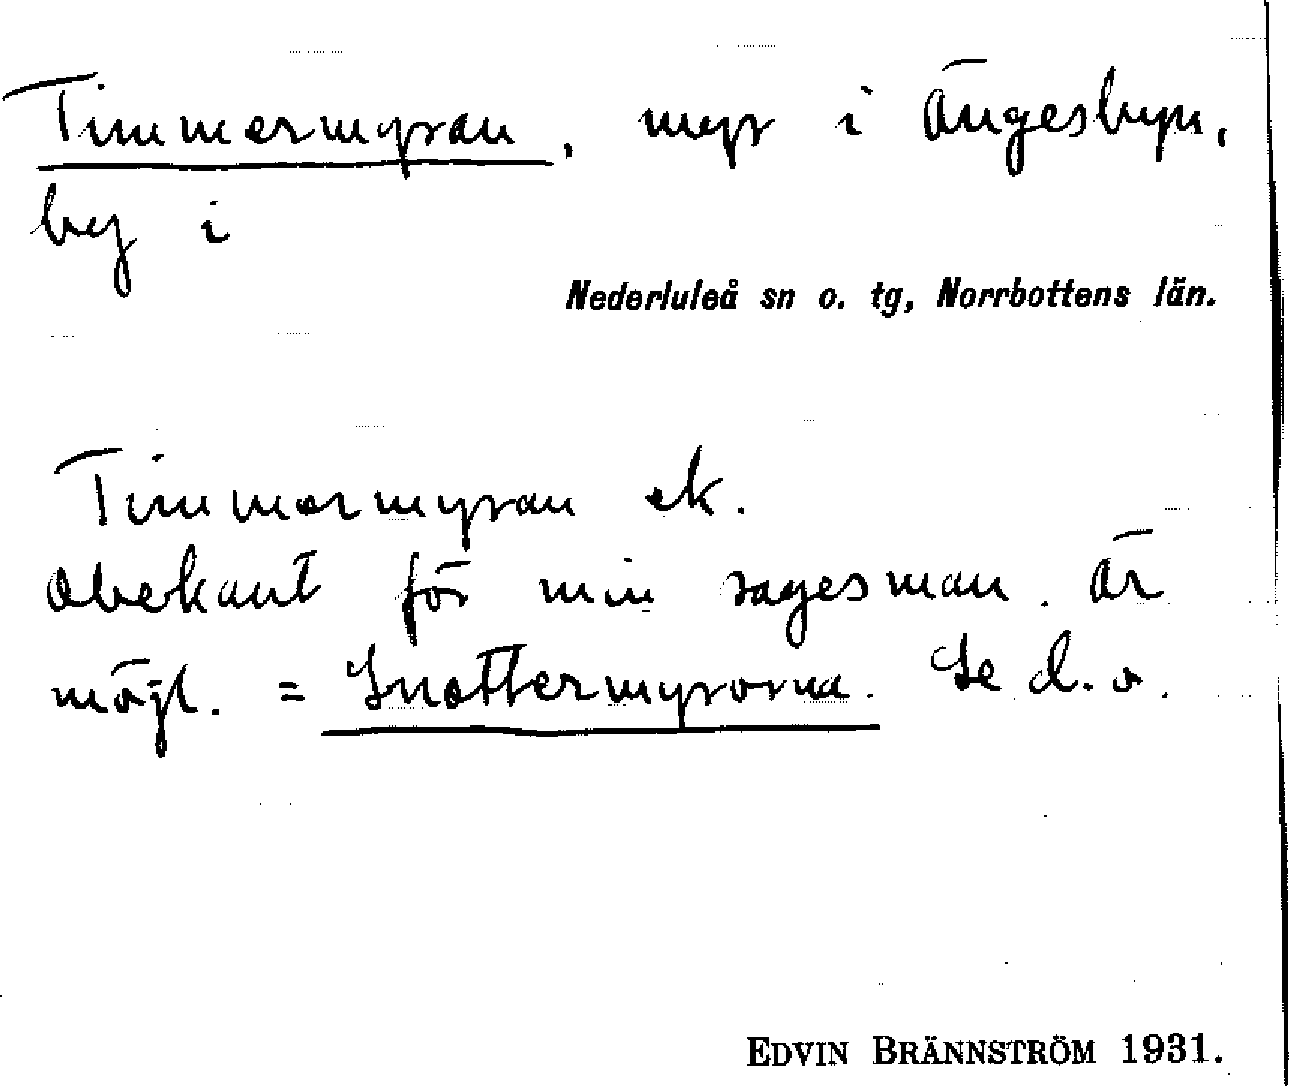 Timmermyran, myr i Ängesbyn,
by i
Nederluleå sn o. tg, Norrbottens län.
Timmermyran ek.
obekant för min sagesman. Är
möjl. = Snottermyrorna. Se d. o.
EDVIN BRÄNNSTRÖM 1931.